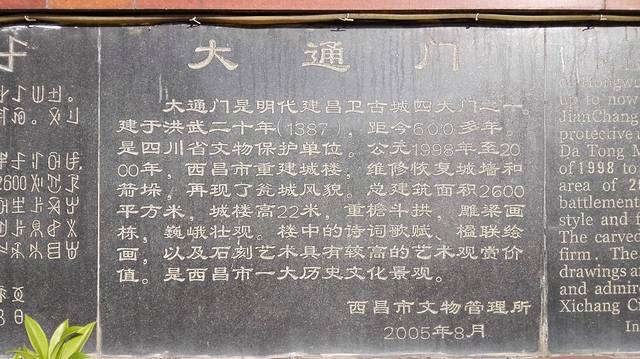 大通门
大通门是明代建昌卫古城四大门之一。
建于洪武二十年(1387)，距今600多年。
是四川省文物保护单位。公元1998年至20
00年，西昌市重建城楼，维修恢复城墙和
箭垛，再现了瓮城风貌。总建筑面积2600
平方米，城楼高22米，重檐斗拱，雕梁画
栋，巍峨壮观。楼中的诗词歌赋、楹联绘
画，以及石刻艺术具有较高的艺术观赏价
值。是西昌市一大历史文化景观。
西昌市文物管理所
2005年8月
2600
of Hongw
up to now
JianChang
protective
Da Tong M
of 1998 to
area of 2
battlement
style and f
The carved
firm. The
drawings a
and admire
Xichang C
In